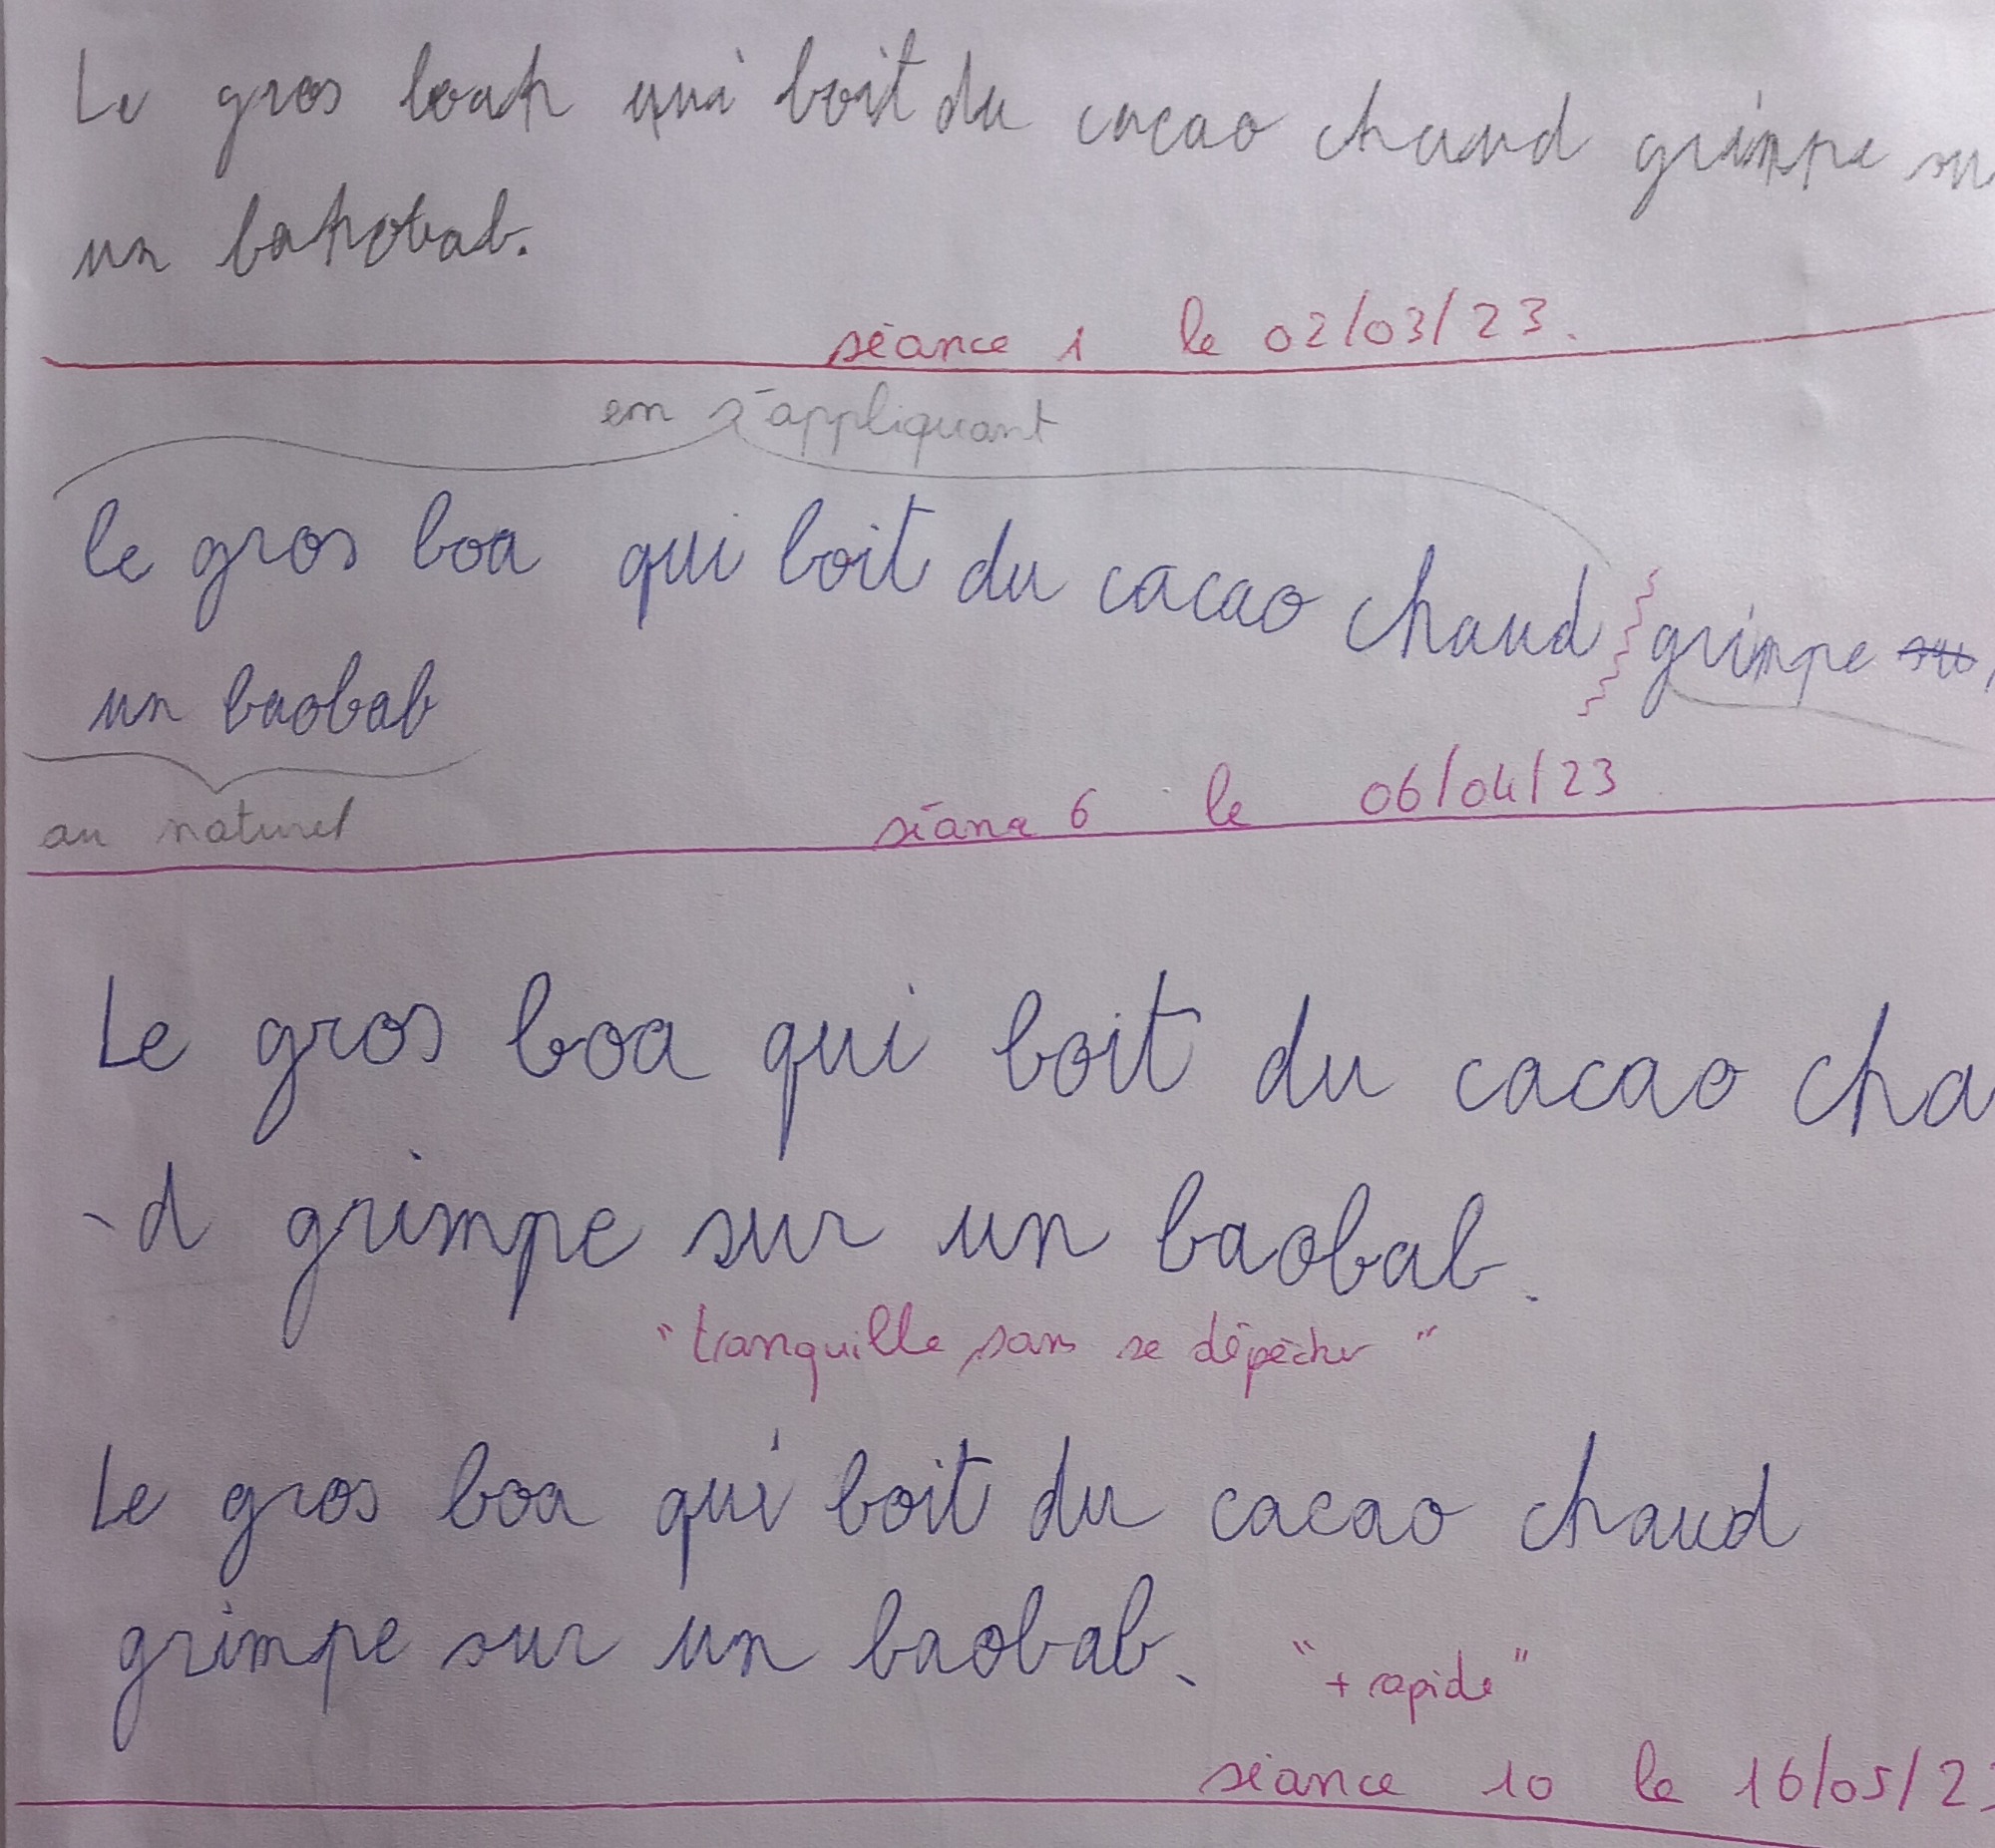 Le gros boah qui boit du cacao chaud grimpe su
un bahobab.
séance 1 le 02/03/23.
en s'appliquant
le gros boa qui boit du cacao chaud grimpe su
un baobab
au naturel
séance 6 le 06/04/23
Le gros boa qui boit du cacao cha
-d grimpe sur un baobab.
"tranquille sans se dépêcher"
Le gros boa qui boit du cacao chaud
grimpe sur un baobab.
"+ rapide"
séance 10 le 16/05/23